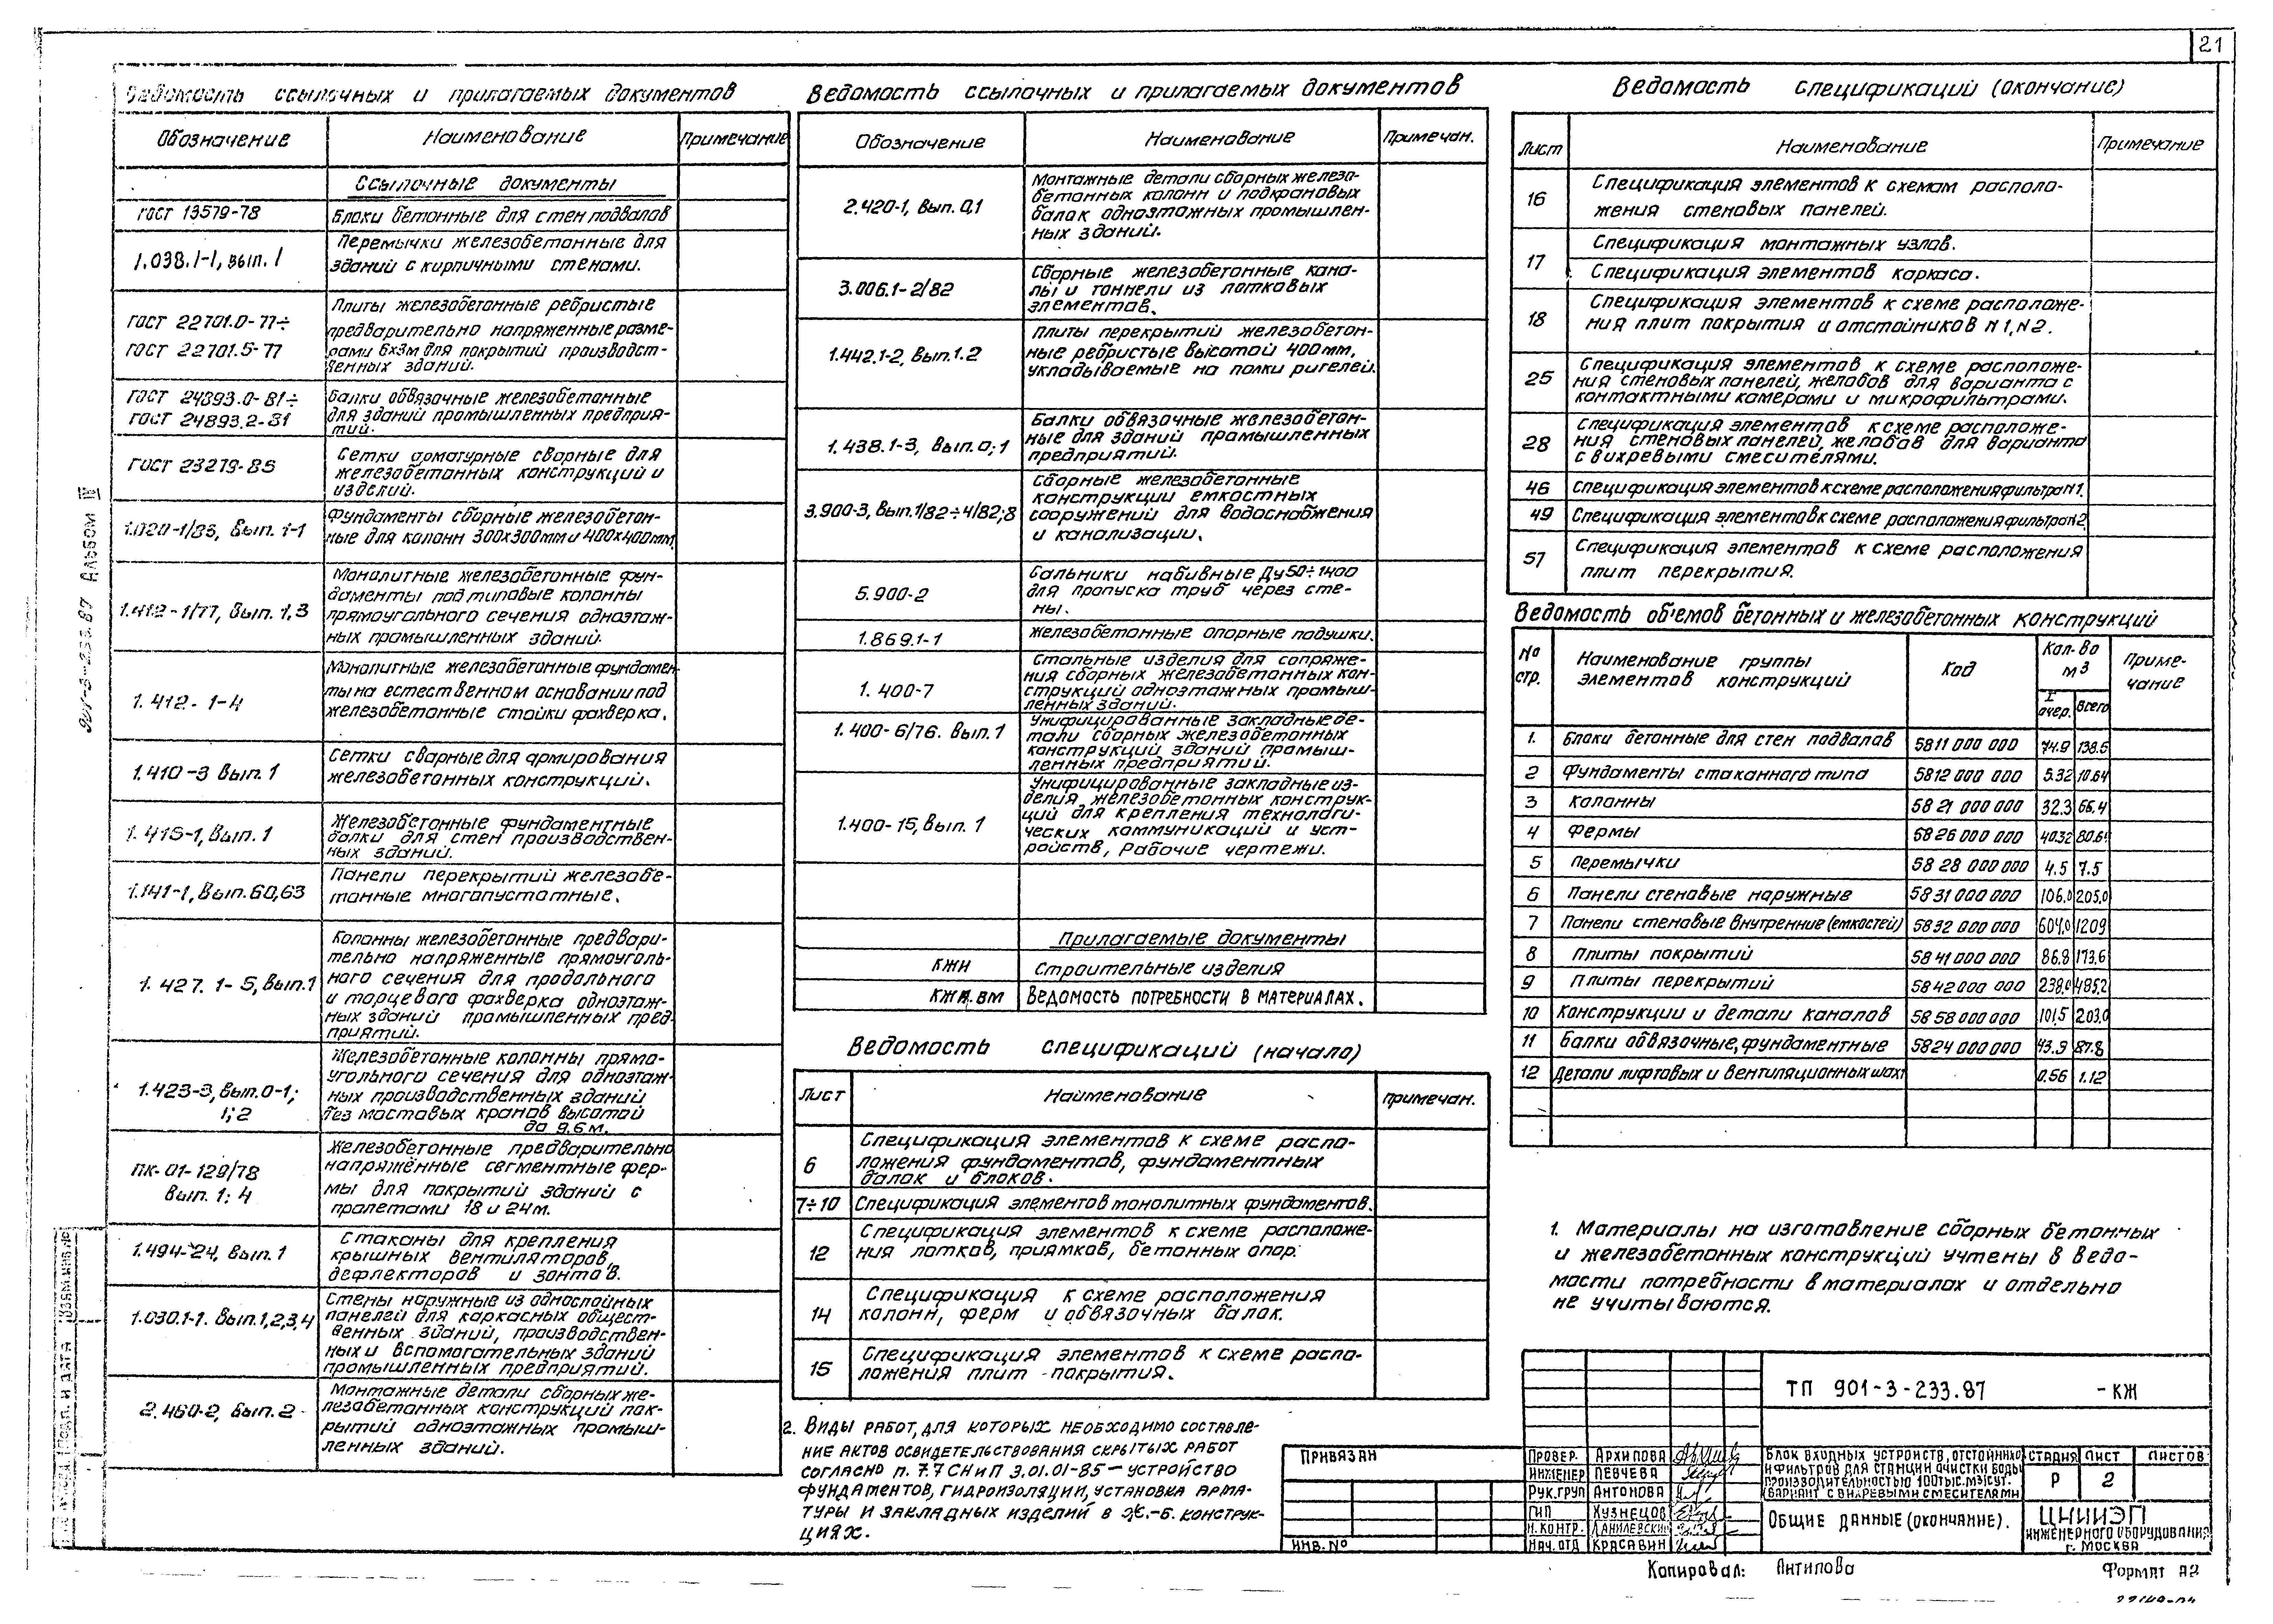 21
Ведомость ссылочных и прилагаемых документов
Обозначение Наименование Примечание
Ссылочные документы
ГОСТ 13579-78 Блоки бетонные для стен подвалов
1.038.1-1, вып. 1 Перемычки железобетонные для
зданий с кирпичными стенами.
ГОСТ 22701.0-77÷
ГОСТ 22701.5-77
Плиты железобетонные ребристые
предварительно напряженные разме-
рами 6х3м для покрытий производст-
венных зданий.
ГОСТ 24893.0-81÷
ГОСТ 24893.2-81
Балки обвязочные железобетонные
для зданий промышленных предприя-
тий.
ГОСТ 23279-85
Сетки арматурные сварные для
железобетонных конструкций и
изделий.
1.020-1/83, Вып. 1-1
Фундаменты сборные железобетон-
ные для колонн 300х300мм и 400х400мм
1.412-1/77, Вып. 1,3
Монолитные железобетонные фун-
даменты под типовые колонны
прямоугольного сечения одноэтаж-
ных промышленных зданий.
1.412-1-4
Монолитные железобетонные фундамен-
ты на естественном основании под
железобетонные стойки фахверка.
1.410-3 Вып. 1
Сетки сварные для армирования
железобетонных конструкций.
1.415-1, Вып. 1
Железобетонные фундаментные
балки для стен производствен-
ных зданий.
1.141-1, Вып. 60,63
Панели перекрытий железобе-
тонные многопустотные.
1.427.1-5, Вып.1
Колонны железобетонные предвари-
тельно напряженные прямоуголь-
ного сечения для продольного
и торцевого фахверка одноэтаж-
ных зданий промышленных пред-
приятий.
1.423-3, вып. 0-1;
1; 2
Железобетонные колонны прямо-
угольного сечения для одноэтаж-
ных производственных зданий
без мостовых кранов высотой
до 9,6м.
ПК-01-129/78
Вып. 1; 4
Железобетонные предварительно
напряжённые сегментные фер-
мы для покрытий зданий с
пролетами 18 и 24м.
1.494-24, Вып. 1
Стаканы для крепления
крышных вентиляторов,
дефлекторов и зонтов.
1.030.1-1. Вып. 1,2,3,4
Стены наружные из однослойных
панелей для каркасных общест-
венных зданий, производствен-
ных и вспомогательных зданий
промышленных предприятий.
2.460-2, Вып. 2
Монтажные детали сборных же-
лезобетонных конструкций пок-
рытий одноэтажных промыш-
ленных зданий.
Ведомость ссылочных и прилагаемых документов
Обозначение Наименование Примечан.
2.420-1, Вып. 0,1
Монтажные детали сборных железо-
бетонных колонн и подкрановых
балок одноэтажных промышлен-
ных зданий.
3.006.1-2/82
Сборные железобетонные кана-
лы и тоннели из лотковых
элементов.
1.442.1-2, Вып. 1.2
Плиты перекрытий железобетон-
ные ребристые высотой 400мм,
укладываемые на полки ригелей.
1.438.1-3, Вып. 0; 1
Балки обвязочные железобетон-
ные для зданий промышленных
предприятий.
3.900-3, Вып. 1/82÷4/82; 8
Сборные железобетонные
конструкции емкостных
сооружений для водоснабжения
и канализации.
5.900-2
Сальники набивные Ду50÷1400
для пропуска труб через сте-
ны.
1.869.1-1 Железобетонные опорные подушки.
1.400-7
Стальные изделия для сопряже-
ния сборных железобетонных кон-
струкций одноэтажных промыш-
ленных зданий.
1.400-6/76. Вып. 1
Унифицированные закладные де-
тали сборных железобетонных
конструкций зданий промыш-
ленных предприятий.
1.400-15, Вып. 1
Унифицированные закладные из-
делия железобетонных конструк-
ций для крепления технологи-
ческих коммуникаций и уст-
ройств, Рабочие чертежи.
Прилагаемые документы
КЖИ Строительные изделия
КЖИ.ВМ Ведомость потребности в материалах.
Ведомость спецификаций (начало)
Лист Наименование Примечан.
6
Спецификация элементов к схеме распо-
ложения фундаментов, фундаментных
балок и блоков.
7÷10 Спецификация элементов монолитных фундаментов.
12
Спецификация элементов к схеме расположе-
ния лотков, приямков, бетонных опор.
14
Спецификация к схеме расположения
колонн, ферм и обвязочных балок.
15
Спецификация элементов к схеме распо-
ложения плит покрытия.
2. Виды работ, для которых необходимо составле-
ние актов освидетельствования скрытых работ
согласно п. 7.7 СНиП 3.01.01-85 — устройство
фундаментов, гидроизоляции, установка арма-
туры и закладных изделий в ж.-б. конструк-
циях.
Ведомость спецификаций (окончание)
Лист Наименование Примечание
16
Спецификация элементов к схемам располо-
жения стеновых панелей.
17
Спецификация монтажных узлов.
Спецификация элементов каркаса.
18
Спецификация элементов к схеме расположе-
ния плит покрытия и отстойников N1, N2.
25
Спецификация элементов к схеме расположе-
ния стеновых панелей, желобов для варианта с
контактными камерами и микрофильтрами.
28
Спецификация элементов к схеме расположе-
ния стеновых панелей, желобов для варианта
с вихревыми смесителями.
46 Спецификация элементов к схеме расположения фильтра N1.
49 Спецификация элементов к схеме расположения фильтра N2
57
Спецификация элементов к схеме расположения
плит перекрытия.
Ведомость объемов бетонных и железобетонных конструкций
№ стр. Наименование группы элементов конструкций Код Кол-во м3 Приме-чание
I очер. Всего
1. Блоки бетонные для стен подвалов 5811 000 000 74.9 138.5
2 Фундаменты стаканного типа 5812 000 000 5.32 10.64
3 Колонны 5821 000 000 32.3 66.4
4 Фермы 5826 000 000 40.32 80.64
5 Перемычки 5828 000 000 4.5 7.5
6 Панели стеновые наружные 5831 000 000 106.0 205.0
7 Панели стеновые внутренние (емкостей) 5832 000 000 604.0 1209
8 Плиты покрытий 5841 000 000 86.8 173.6
9 Плиты перекрытий 5842 000 000 238.0 485.2
10 Конструкции и детали каналов 5858 000 000 101.5 203.0
11 Балки обвязочные, фундаментные 5824 000 000 43.9 87.8
12 Детали лифтовых и вентиляционных шахт 0.56 1.12
1. Материалы на изготовление сборных бетонных
и железобетонных конструкций учтены в ведо-
мости потребности в материалах и отдельно
не учитываются.
ТП 901-3-233.87 -КЖ
Привязан
Инв. №
Провер. Архипова
Инженер Певчева
Рук.груп Антонова
ГИП Кузнецов
Н.контр. Данилевский
Нач.отд Красавин
Блок входных устройств, отстойников
и фильтров для станции очистки воды
производительностью 100тыс.м3/сут.
(вариант с вихревыми смесителями)
Стадия Лист Листов
Р 2
Общие данные (окончание).
ЦНИИЭП
инженерного оборудования
г. Москва
Копировал: Антипова Формат А2
901-3-233.87 Альбом IV
Взам.инв.№
Подп. и дата